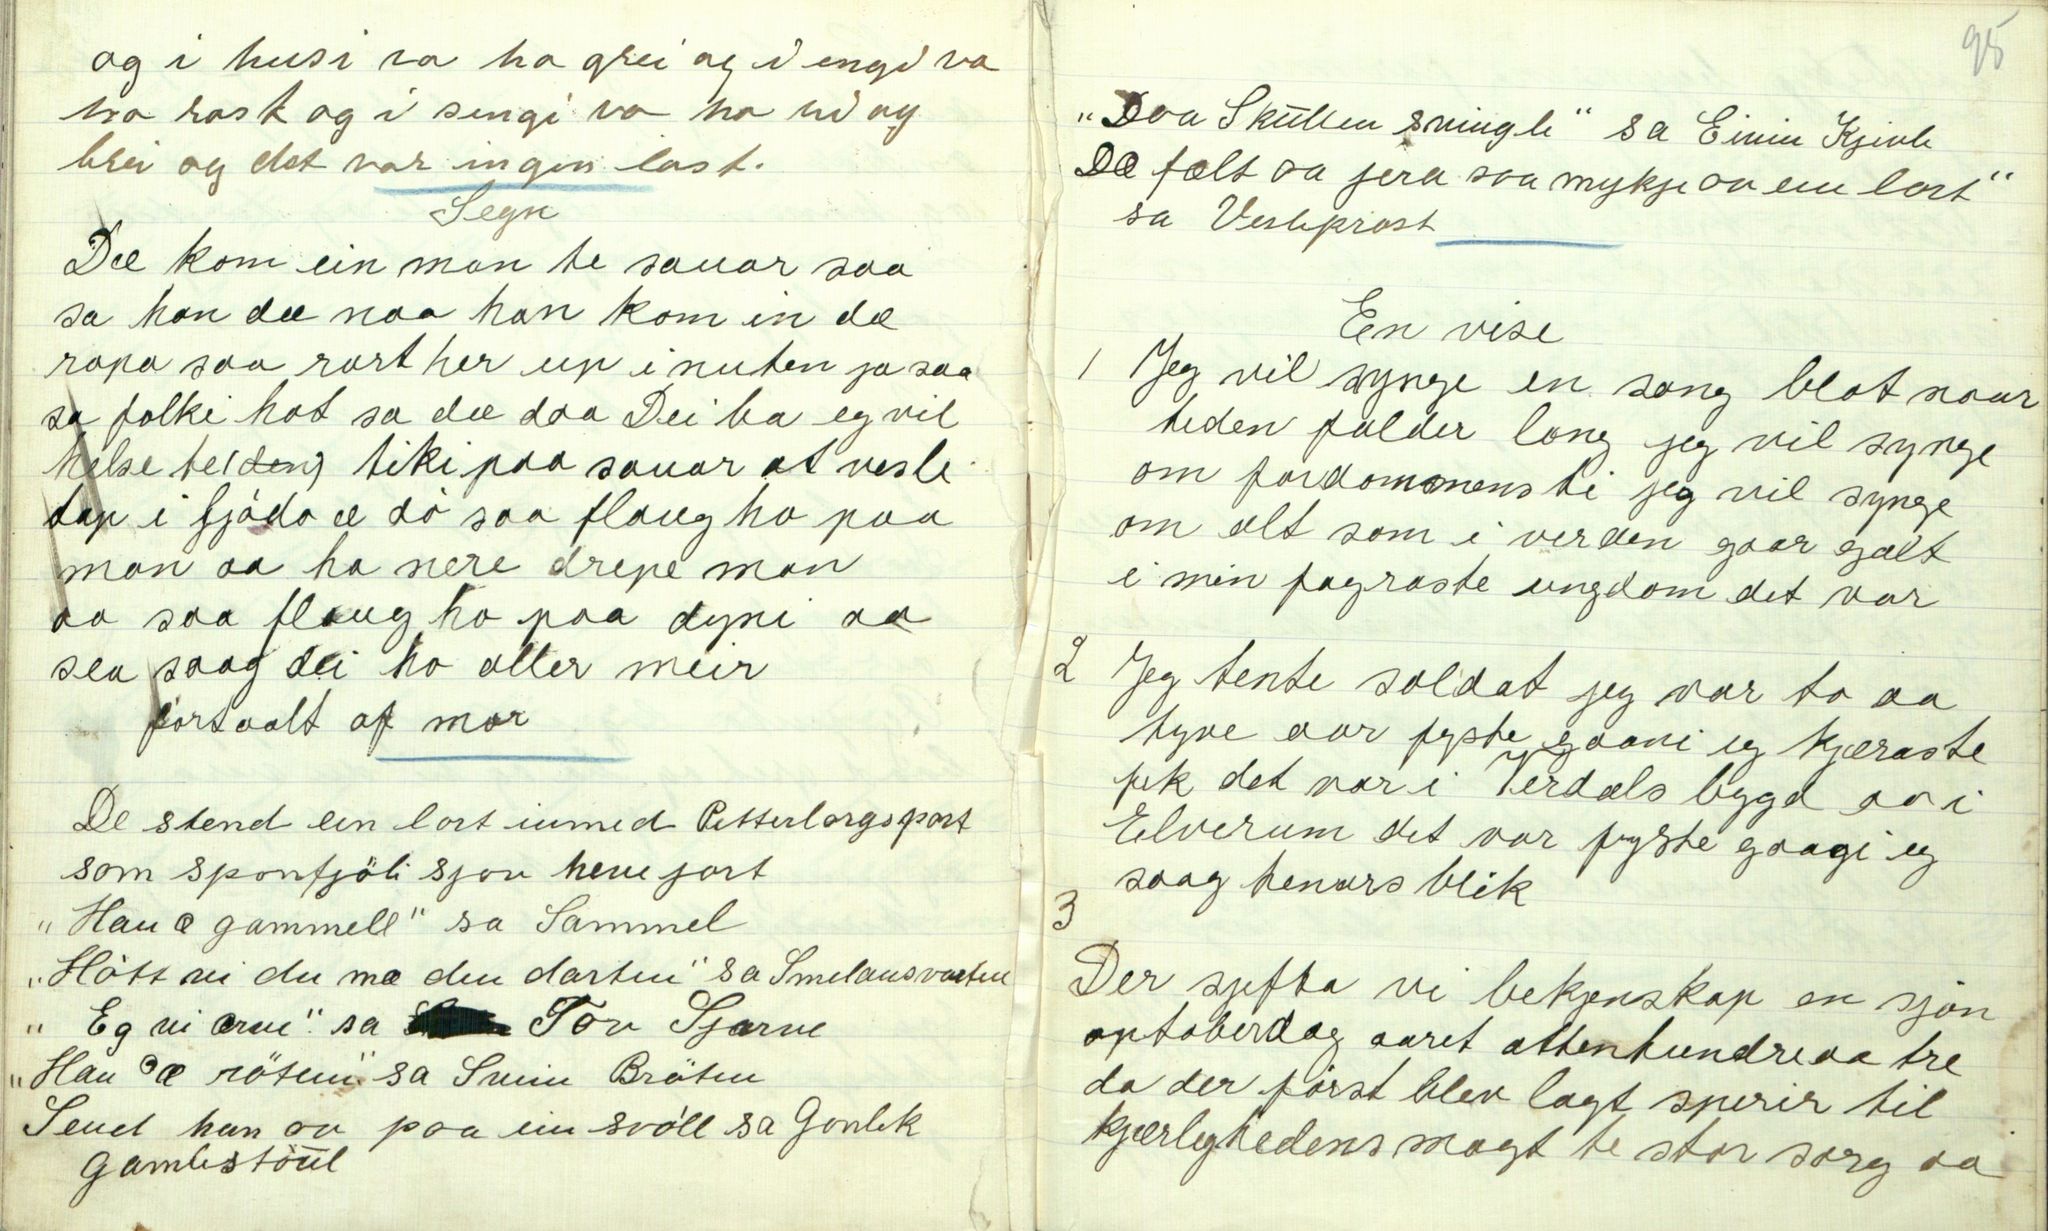 og i husi va ho grei og i engi va
ho rast og i sengi va ho vi og
brei og det var ingen last.
Segn
Dæ kom ein man te sauar saa
sa han dæ naa han kom in dæ
ropa saa rart her up i nuten ja saa
sa folki hot sa dæ daa Dei ba eg vil
helse te (den) tiki paa sauar at vesle
tap i fjödo æ dö saa flaug ho paa
man aa ho nere drepe man
aa saa flaug ho paa dyni aa
sea saag dei ho aller meir
fortaalt af mor
De stend ein lort iumed Petterborgsport
som sponfjöli sjøu heve jort
"Hau æ gammell" sa Sammel
"Hött vi du mæ den darten" sa Smelausvarten
"Eg vi erve" sa Tov Sjarve
"Hau æ röten" sa Svein Bröten
Send han av paa ein svöll sa Gonlek
Gamlestöül
95
"Daa Sküllen svingle" sa Eivin Kjivle
Dæ fælt aa jera saa mykje av ein lort"
sa Vesleprost
En vise
1 Jeg vil synge en sang blot naar
tiden falder long jeg vil synge
om fordommens ti jeg vil synge
om alt som i verden gaar galt
i min fagraste ungdom det var
2 Jeg tente soldat jeg var to aa
tyve aar fyste gaani eg kjæraste
fek det var i Verdals bygd aa i
Elverum det var fyste gaagi eg
saag henars blik
3
Der sjefta vi bekjenskap en sjön
optoberdag aaret attenhundre aa tre
da der först blev lagt sperir til
kjærlighedens magt te stor sorg aa